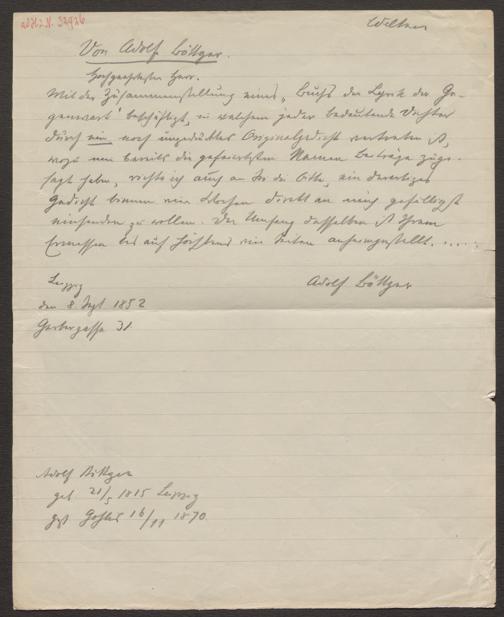 Von Adolf Böttger.
Hochgeehrtester Herr.
Mit der Zusammenstellung eines „Buchs der Lyrik der Ge-
genwart" beschäftigt, in welchem jeder bedeutende Dichter
durch ein noch ungedrucktes Originalgedicht vertreten ist,
wozu mir bereits die gefeiertsten Namen Beiträge zuge-
sagt haben, richte ich auch an Sie die Bitte, ein derartiges
Gedicht binnen vier Wochen direkt an mich gefälligst
einsenden zu wollen. Der Umfang desselben ist Ihrem
Ermessen bis auf höchstens Seiten anheimgestellt.......
Adolf Böttger
Leipzig
den 8 Sept 1852
Gerbergasse 31
Adolf Böttger
geb 21/5 1815 Leipzig
gest Gohlis 16/11 1870